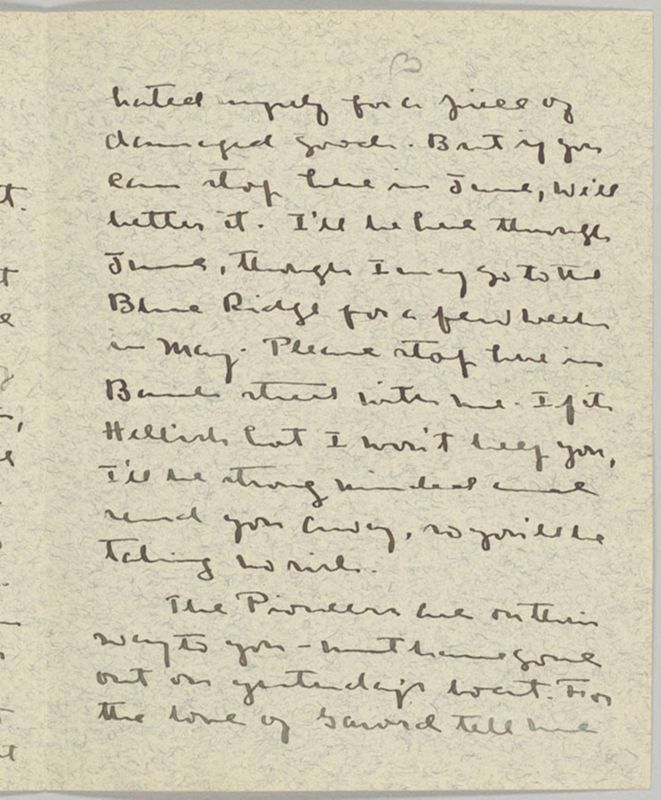 hated myself for a piece of
damaged goods. But if you
can stop here in June, will
better it. I'll be here through
June, though I may go to the
Blue Ridge for a few weeks
in May. Please stop here in
Bank street with me. If it's
Hellish hot I won't keep you,
I'll be strong minded and
send you away, so you'll be
taking no risk.
The Pioneers are on their
way to you - must have gone
out on yesterday's boat. For
the love of Gawd tell me